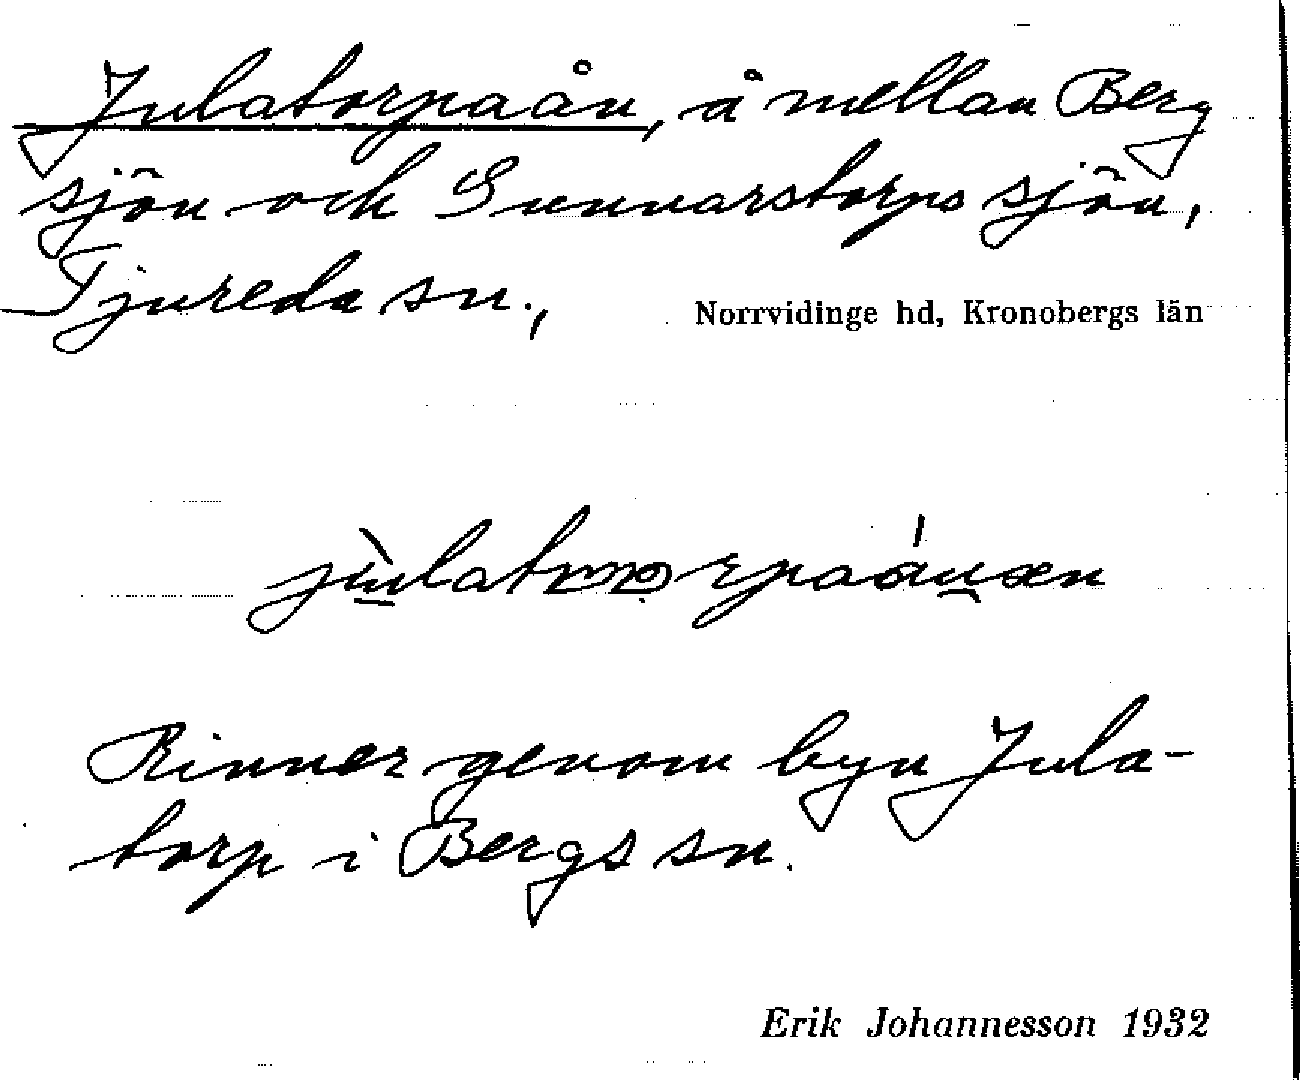 Julatorpaån, å mellan Berg
sjön och Gunnarstorpssjön,
Tjureda sn.,
Norrvidinge hd, Kronobergs län
Rinner genom byn Jula-
torp i Bergs sn.
Erik Johannesson 1932